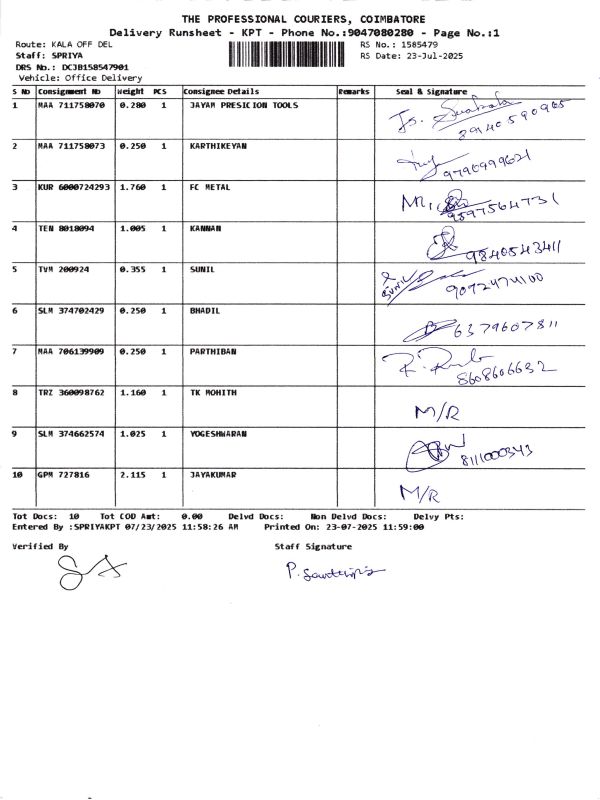 THE PROFESSIONAL COURIERS, COIMBATORE
Delivery Runsheet - KPT - Phone No.:9047080280 - Page No.:1
Route: KALA OFF DEL RS No.: 1585479
Staff: SPRIYA RS Date: 23-Jul-2025
DRS No.: DCJB158547901
Vehicle: Office Delivery
S No Consignment No Weight PCS Consignee Details Remarks Seal & Signature
1 MAA 711758070 0.280 1 JAYAM PRESICION TOOLS
2 MAA 711758073 0.250 1 KARTHIKEYAN 9790999621
3 KUR 6000724293 1.760 1 FC METAL 9597564731
4 TEN 8018094 1.005 1 KANNAN 9840543411
5 TVM 200924 0.355 1 SUNIL SUNIL
6 SLM 374702429 0.250 1 BHADIL 6379607811
7 MAA 706139909 0.250 1 PARTHIBAN 8608606632
8 TRZ 360098762 1.160 1 TK MOHITH M/R
9 SLM 374662574 1.025 1 YOGESHWARAN 8111000343
10 GPM 727816 2.115 1 JAYAKUMAR M/R
Tot Docs: 10 Tot COD Amt: 0.00 Delvd Docs: Non Delvd Docs: Delvy Pts:
Entered By :SPRIYAKPT 07/23/2025 11:58:26 AM Printed On: 23-07-2025 11:59:00
Verified By Staff Signature